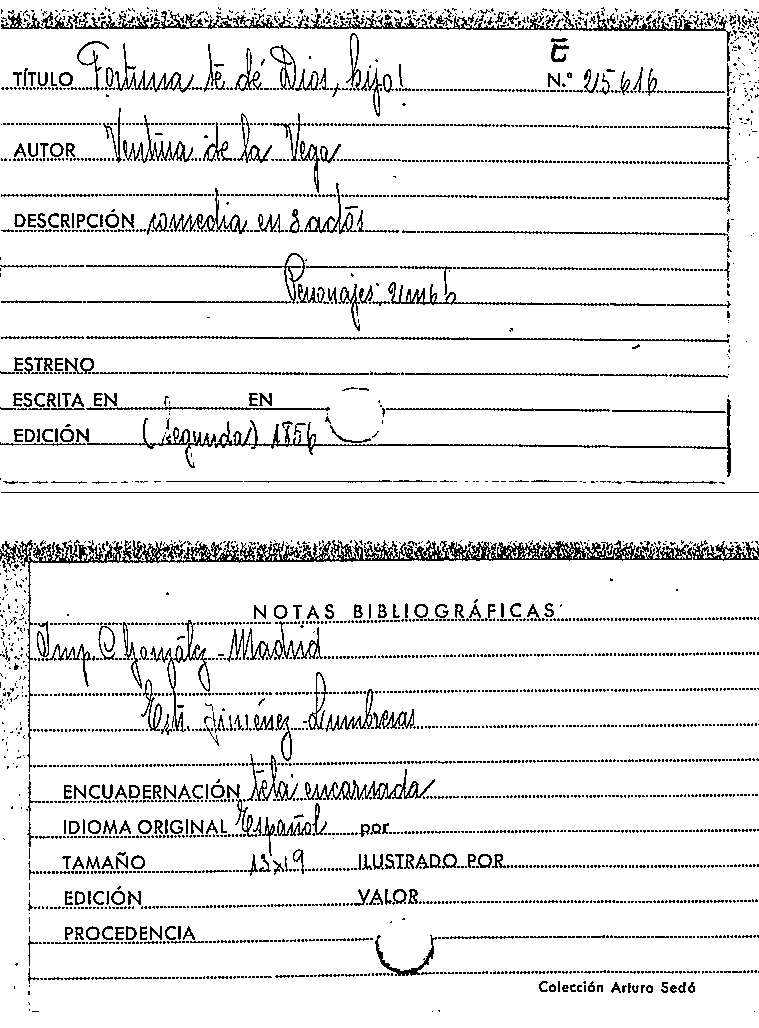 C̄
TÍTULO Fortuna te dé Dios, hijo! N.º 215616
AUTOR Ventura de la Vega
DESCRIPCIÓN comedia en 3 actos
Personajes
ESTRENO
ESCRITA EN EN
EDICIÓN (Segunda) 1856
NOTAS BIBLIOGRÁFICAS
Imp. C González - Madrid
Jiménez - Lumbreras
ENCUADERNACIÓN tela encarnada
IDIOMA ORIGINAL Español por
TAMAÑO 13x19 ILUSTRADO POR
EDICIÓN VALOR
PROCEDENCIA
Colección Arturo Sedó